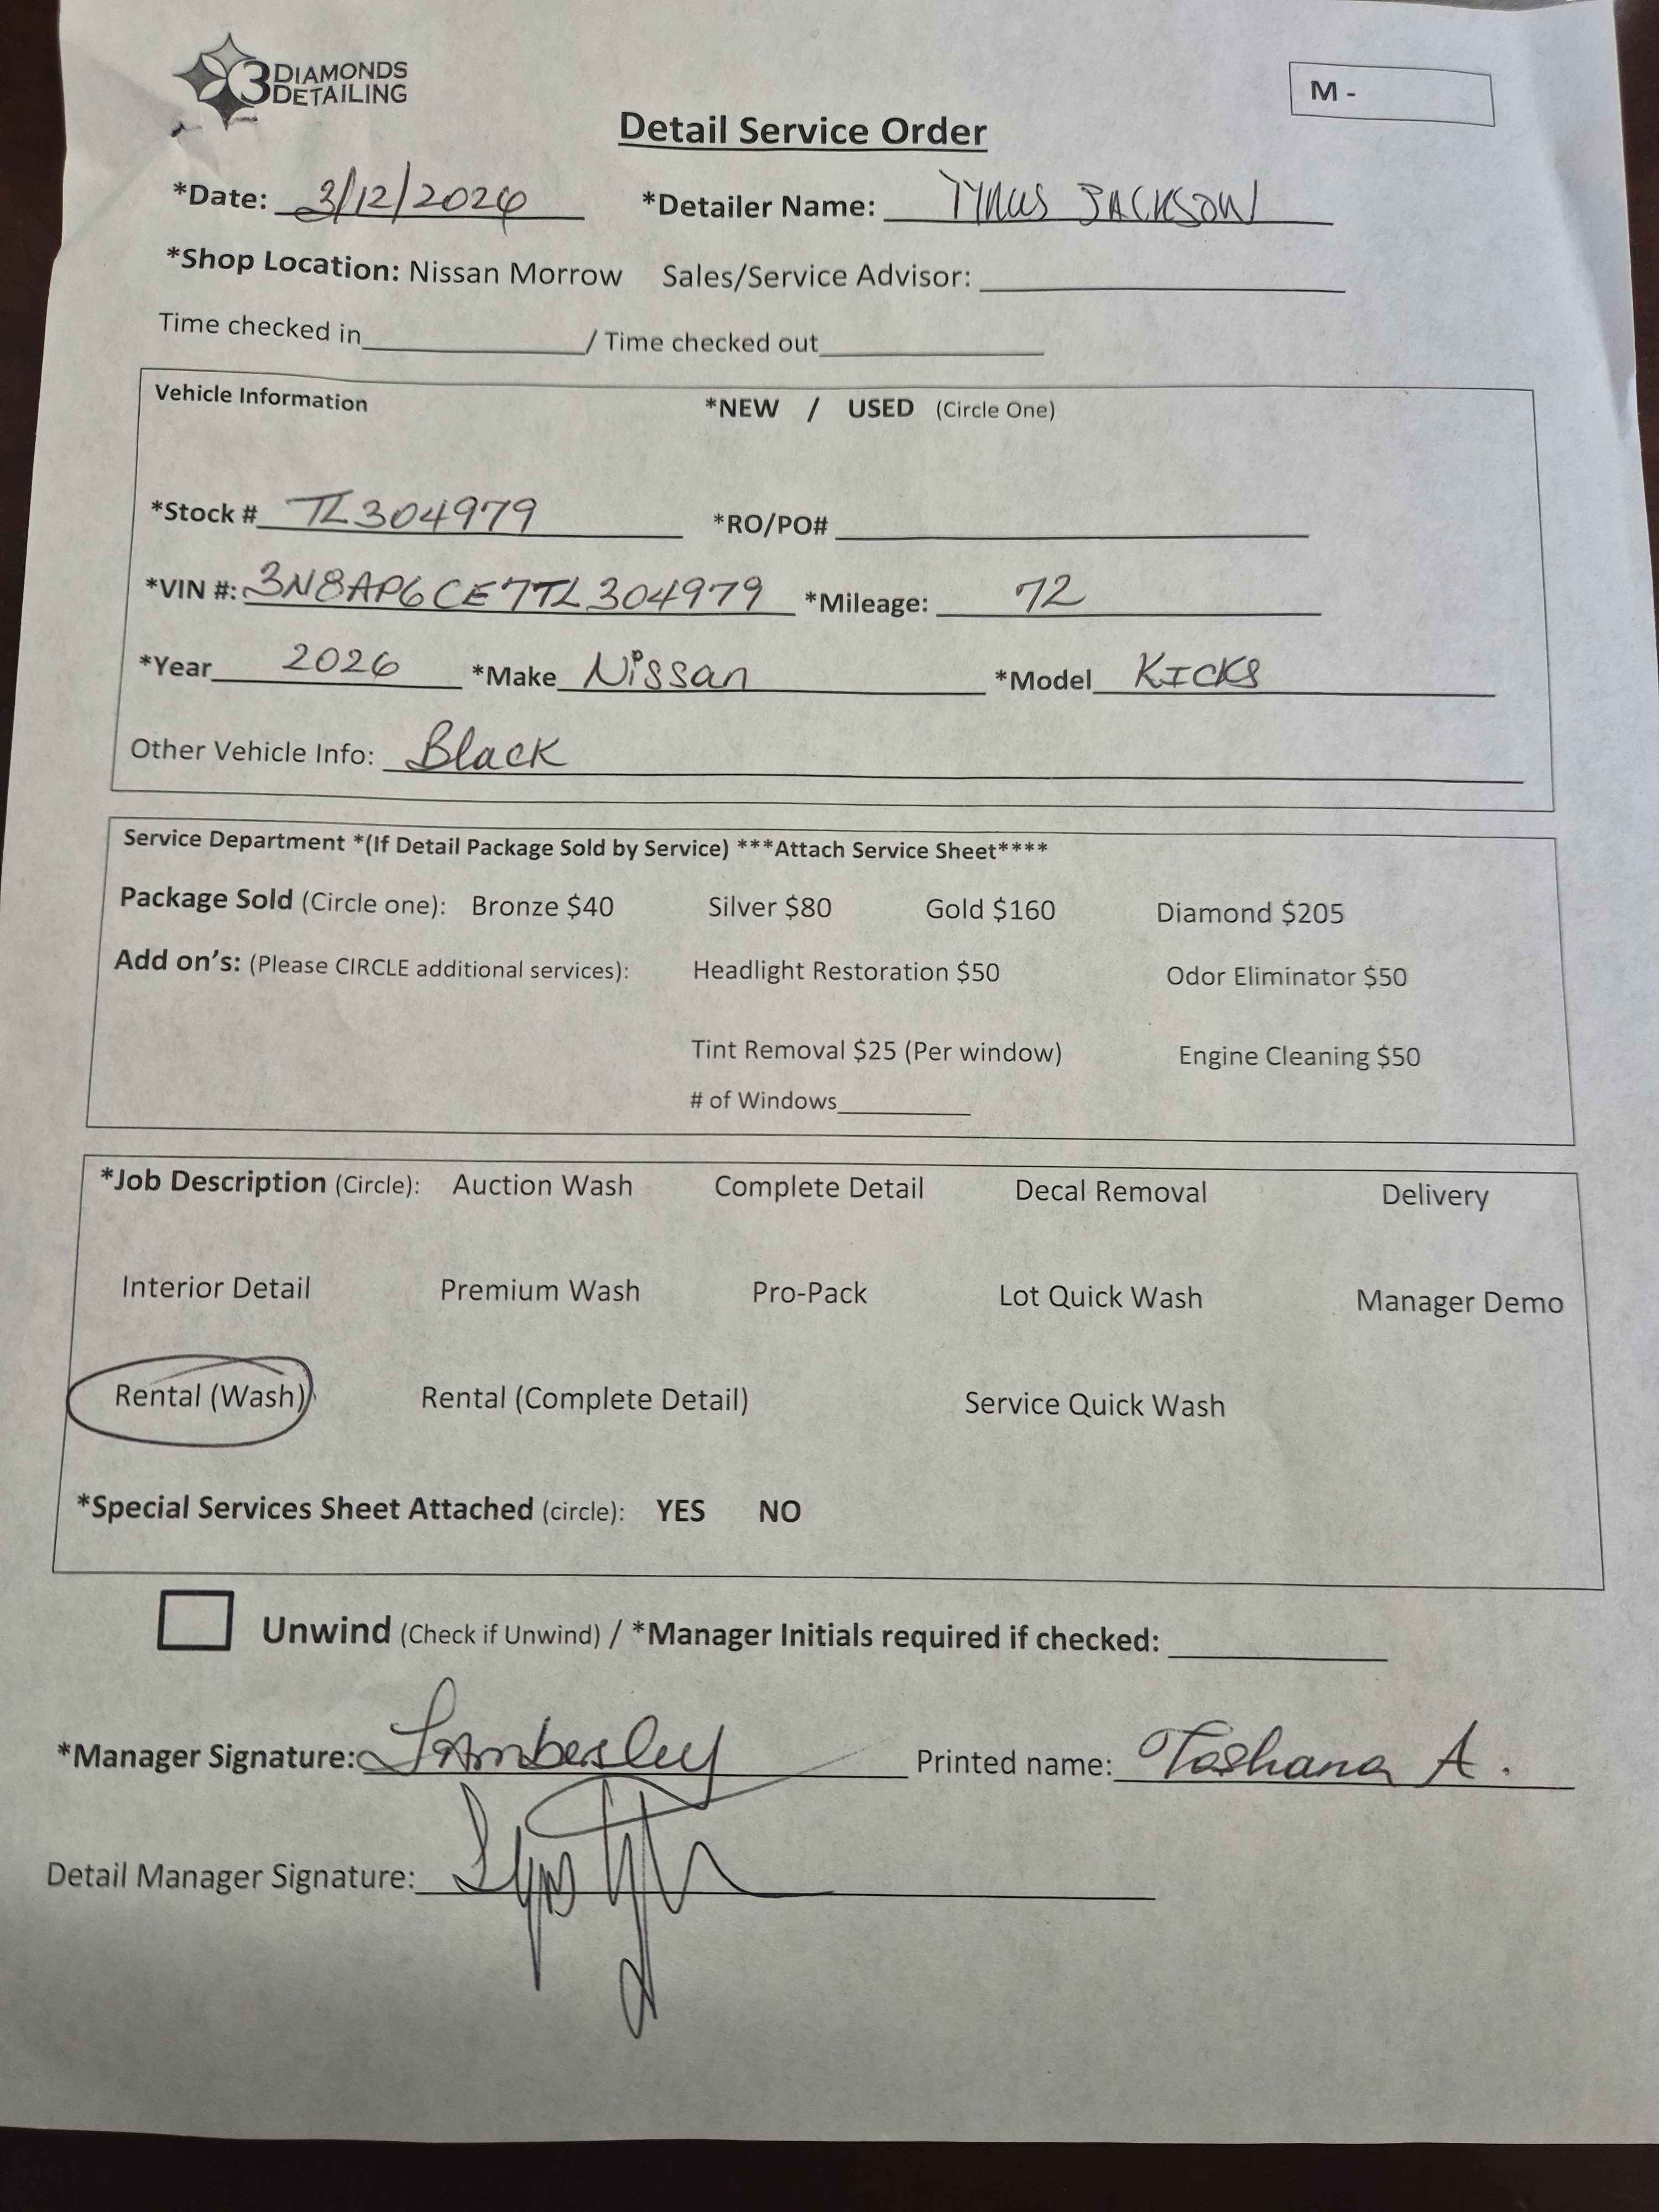 3 DIAMONDS DETAILING
M -
Detail Service Order
*Date: 3/12/2026 *Detailer Name: TYRUS JACKSON
*Shop Location: Nissan Morrow Sales/Service Advisor:
Time checked in / Time checked out
Vehicle Information *NEW / USED (Circle One)
*Stock # TL304979 *RO/PO#
*VIN #: 3N8AP6CE7TL304979 *Mileage: 72
*Year 2026 *Make Nissan *Model KICKS
Other Vehicle Info: Black
Service Department *(If Detail Package Sold by Service) ***Attach Service Sheet****
Package Sold (Circle one): Bronze $40 Silver $80 Gold $160 Diamond $205
Add on's: (Please CIRCLE additional services): Headlight Restoration $50 Odor Eliminator $50
Tint Removal $25 (Per window) Engine Cleaning $50
# of Windows
*Job Description (Circle): Auction Wash Complete Detail Decal Removal Delivery
Interior Detail Premium Wash Pro-Pack Lot Quick Wash Manager Demo
Rental (Wash) Rental (Complete Detail) Service Quick Wash
*Special Services Sheet Attached (circle): YES NO
Unwind (Check if Unwind) / *Manager Initials required if checked:
*Manager Signature: Printed name: Tashana A.
Detail Manager Signature: